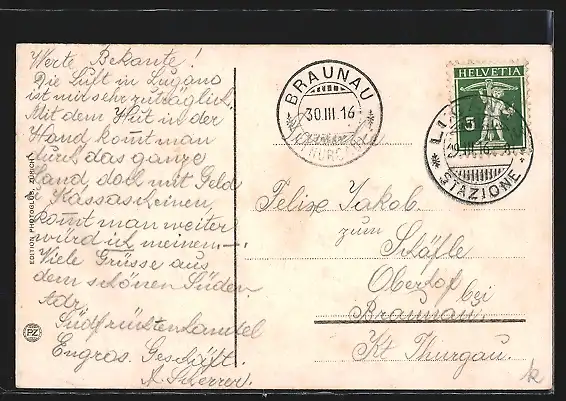 Werte Bekante!
Die Luft in Lugano
ist mir sehr zuträglich.
Mit dem Hut in der
Hand komt man
durch das ganze
Land, doch mit Geld
Kassascheinen
komt man weiter
würd ich meinen.
Viele Grüsse aus
dem schönen Süden
Adr.
Südfrüchtenhandel
Engros. Geschäft.
A. Scherrer.
EDITION PHOTOGLOB, ZÜRICH
PZ
BRAUNAU
30.III.16
THURGAU
HELVETIA
5
29.III.16
STAZIONE
Familie
Felix Jakob
zum Schäfle
Oberhof
bei
Braunau.
Kt Thurgau.